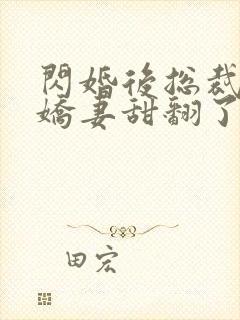 閃婚後総裁
嬌妻甜翻了
田宏